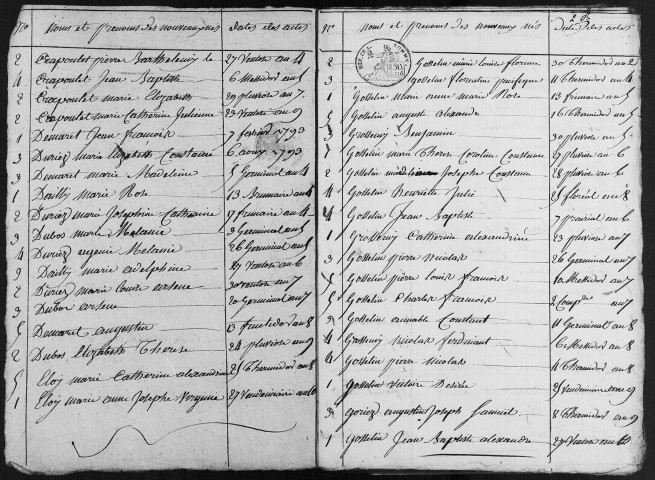 No Noms et prenoms des nouveaux nés dates des actes
2 Crapoulet pierre Barthelemy le 27 Ventose an 4
4 Crapoulet Jean Baptiste 6 Messidor an 5
2 Crapoulet marie Elizabeth 29 pluviose an 7
2 Crapoulet marie Catherine Julienne 23 Ventose an 9
1 Demaret Jean francois 7 fevrier 1793
3 Duriez marie Elizabeth Constance 6 aoust 1793
3 Demaret marie Madeleine 5 Germinal an 4
1 Dailly marie Rose 13 Brumaire an 4
2 Duriez marie Josephine Catherine 17 frimaire an 4
3 Dubos marie Melanie 3 Germinal an 5
4 Duriez eugenie Melanie 26 Germinal an 5
2 Dailly marie adelphine 27 Ventose an 6
2 Duriez marie Louise arsene 30 Ventose an 7
3 Dubos arsene 20 Germinal an 7
5 Demaret augustin 13 fructidor an 8
2 Dubos Elizabeth Therese 24 pluviose an 9
5 Eloy marie Catherine alexandrine 25 Thermidor an 8
1 Eloy marie anne Josephe 27 Vendemiaire an 10
No Noms et prenoms des nouveaux nés Dates des actes
2 Gosselin marie Louise florence 30 Thermidor an 2
3 Gosselin florentine pacifique 11 Thermidor an 4
1 Gosselin marie anne marie Rose 13 frimaire an 5
5 Gosselin auguste alexandre 16 Thermidor an 5
3 Grossemy Benjamin 30 pluviose an 5
1 Gosselin marie Therese Caroline Constance 27 pluviose an 6
2 Gosselin Josephe Constance 28 pluviose an 6
4 Gosselin henriette Julie 25 floréal an 8
4 Gosselin Jean Baptiste 7 prairial an 6
1 Grossemy Catherine alexandrine 23 pluviose an 7
3 Gosselin pierre nicolas 26 Germinal an 7
5 Gosselin pierre Louis francois 10 Messidor an 7
5 Gosselin Charles francois 2 Compre an 7
3 Gosselin aimable Constant 11 Germinal an 8
4 Grossemy nicolas ferdinant 6 Messidor an 8
4 Gosselin pierre nicolas 11 Thermidor an 8
1 Gosselin victoire Desirée 25 Vendemiaire an 9
3 Goriez augustin Joseph Samuel 8 Thermidor an 9
1 Gosselin Jean Baptiste alexandre 27 Ventose an 10